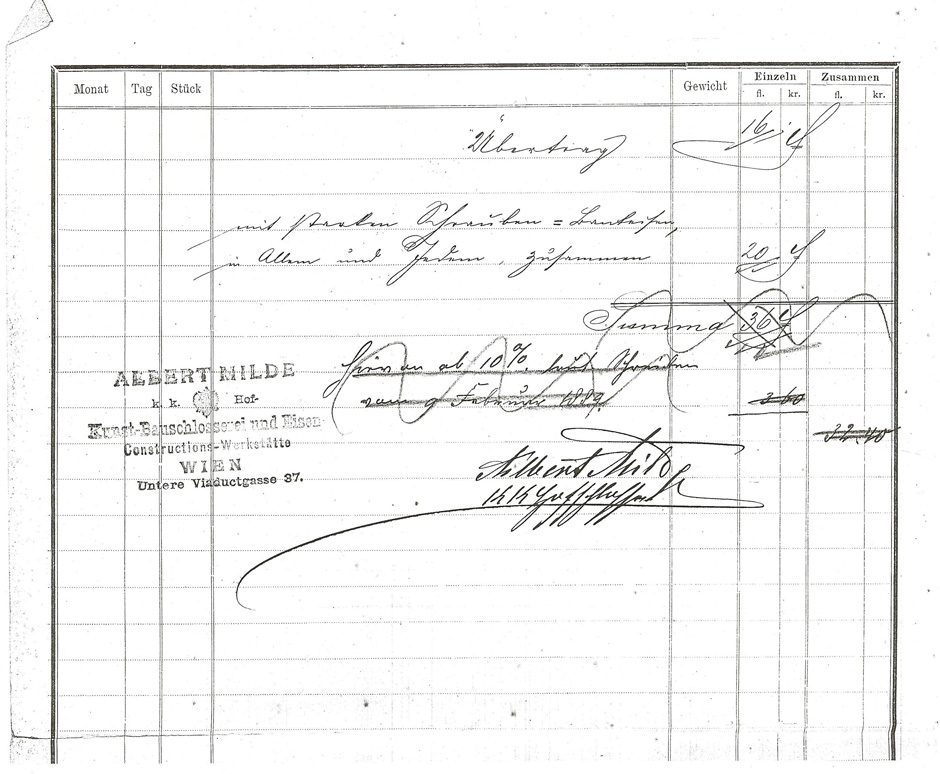 Monat Tag Stück Gewicht Einzeln Zusammen
fl. kr. fl. kr.
Übertrag 16
mit starken Schrauben = Bankeisen,
in Allem und Jedem, zusammen 20
Summa 36
Hievon ab 10% laut Schreiben
vom 9 Februar 1889. 3 60
32 40
ALBERT MILDE
k. k. Hof-
Kunst-Bauschlosserei und Eisen-
Constructions-Werkstätte
WIEN
Untere Viaductgasse 37.
Albert Milde
KK Hofschlosser